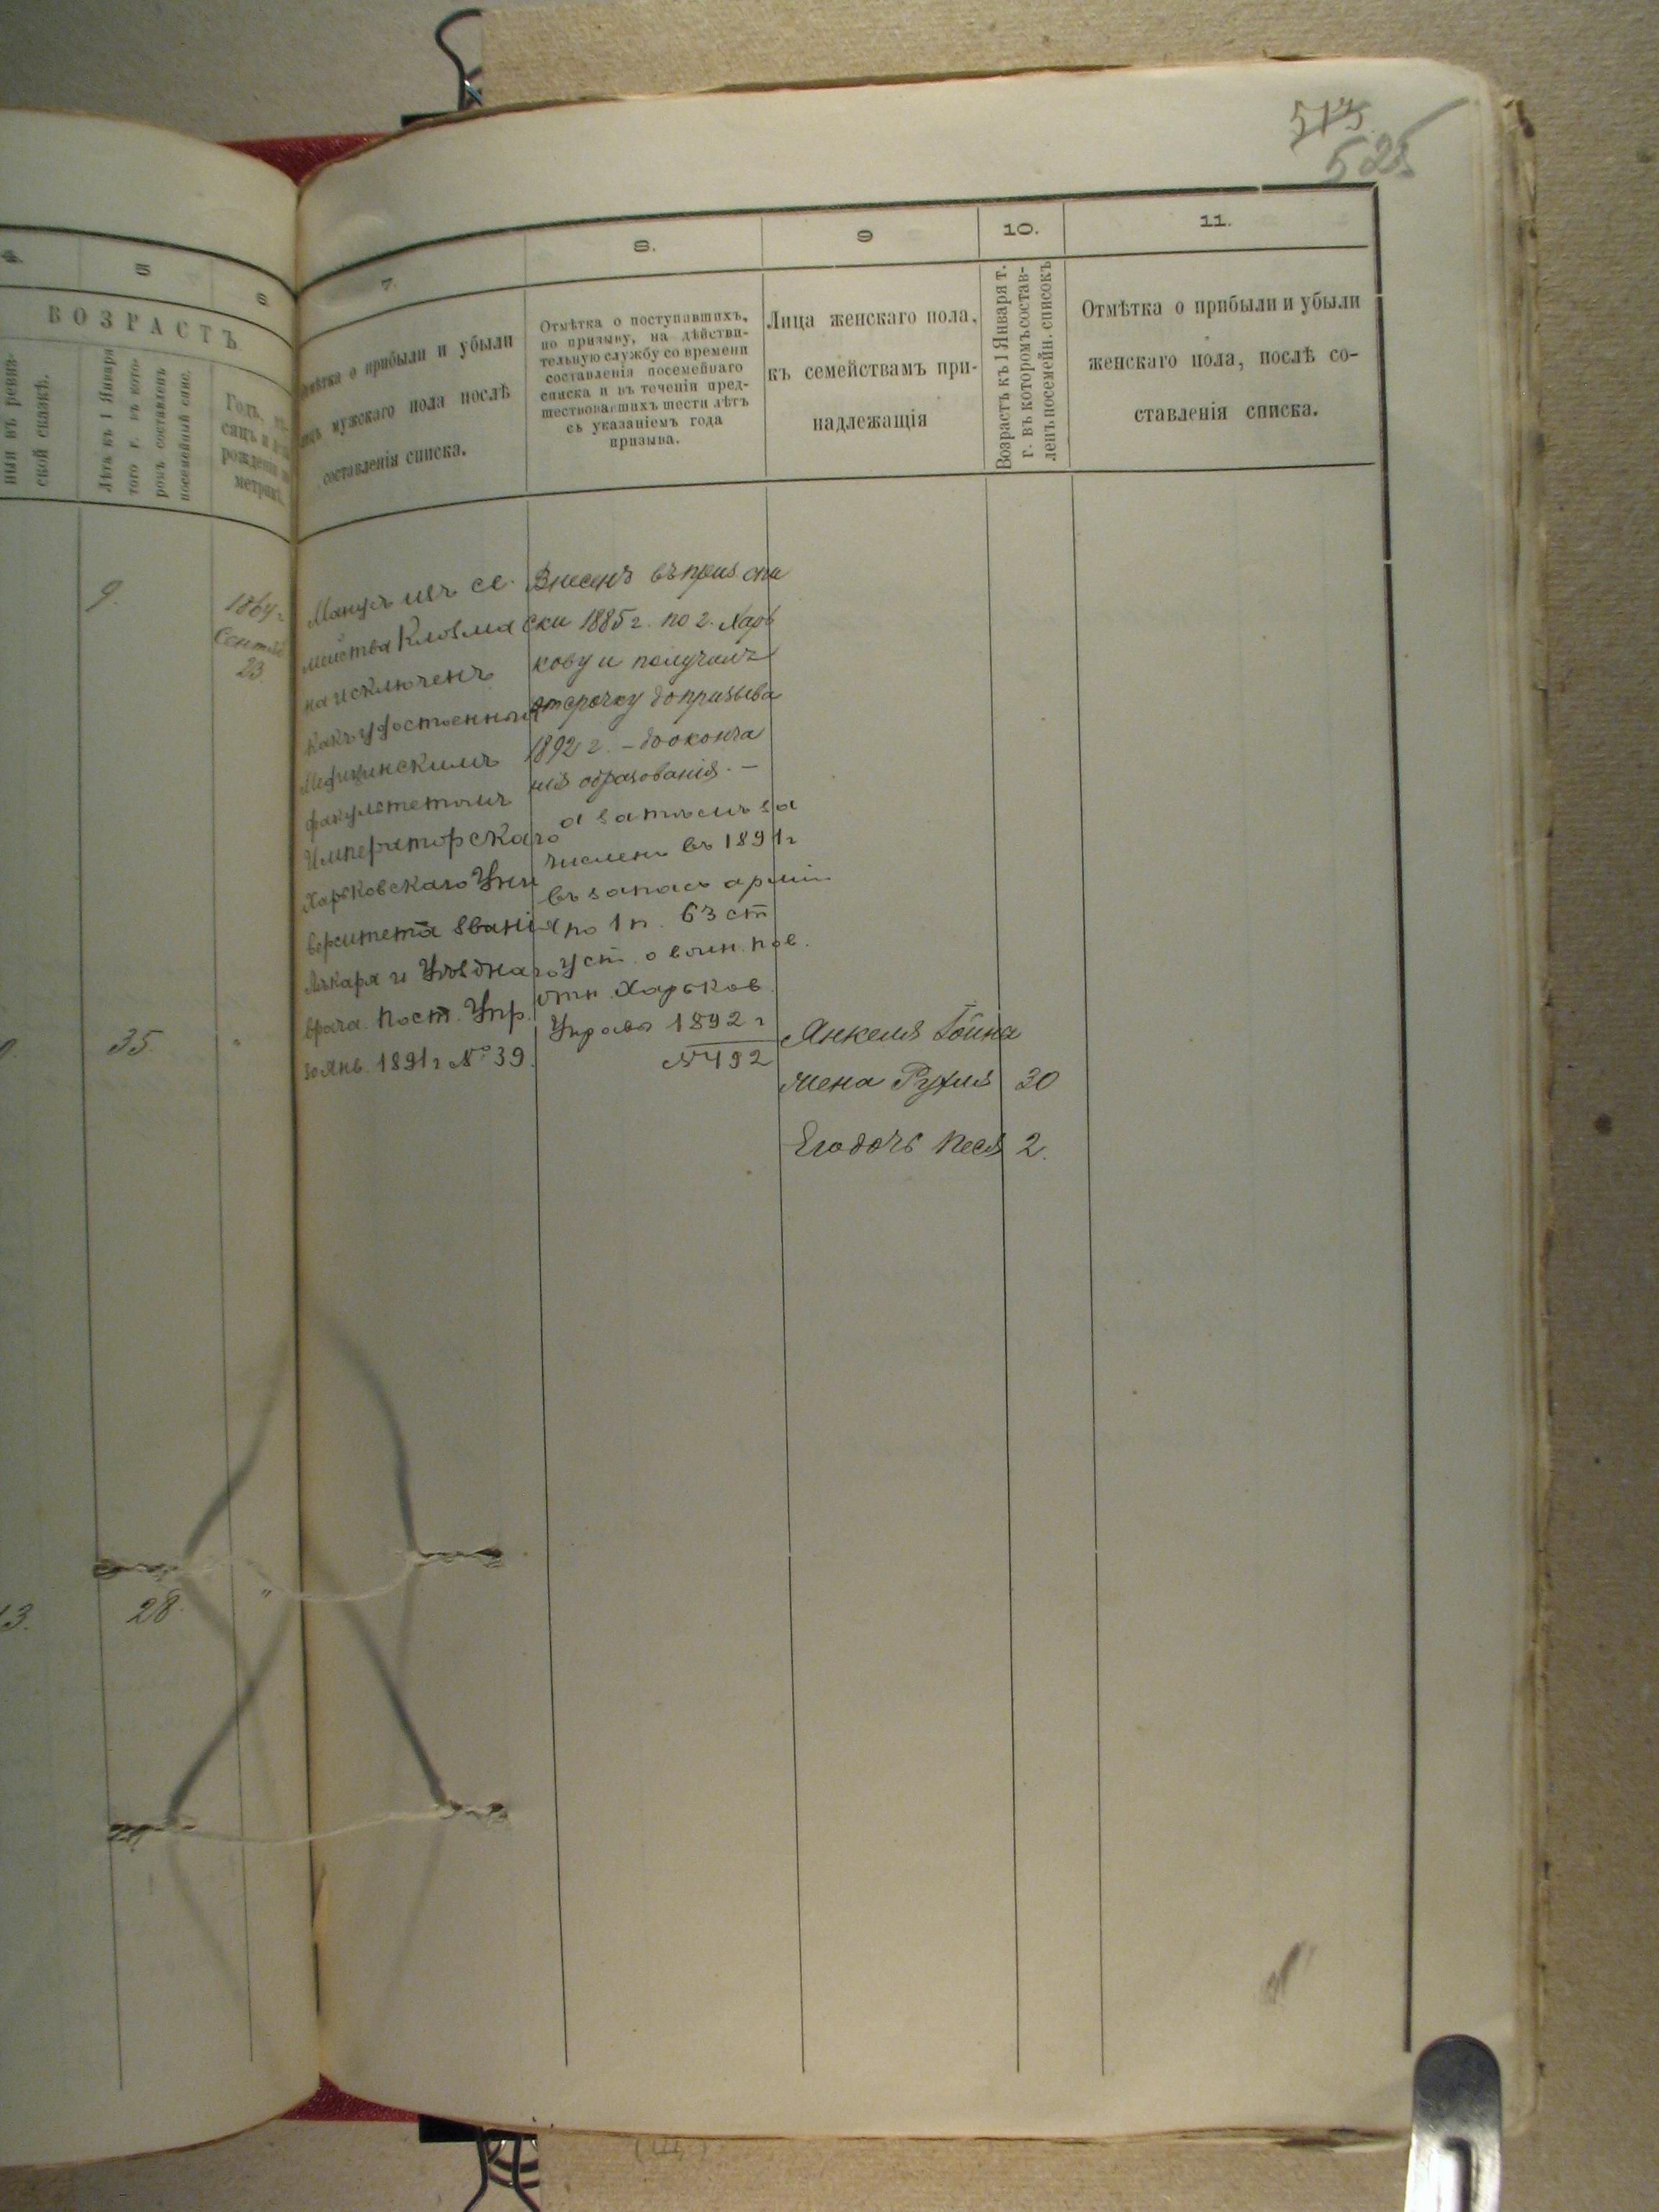 515
525
4.
5
6
ВОЗРАСТЪ
ныя въ ревиз-
ской сказкѣ.
Лѣта къ 1 Января
того г. въ кото-
ромъ составленъ
посемейный спис.
Годъ, мѣ-
сяцъ и
рожденія по
метрик.
9.
1864 г
Сентяб
23.
35.
"
13.
28.
"
7.
8.
9
10.
11.
Отмѣтка о прибыли и убыли
лицъ мужскаго пола послѣ
составленія списка.
Отмѣтка о поступавшихъ,
по призыву, на дѣйстви-
тельную службу со времени
составленія посемейнаго
списка и въ теченіи пред-
шествовавшихъ шести лѣтъ
съ указаніемъ года
призыва.
Лица женскаго пола,
къ семействамъ при-
надлежащія
Возрастъ къ 1 Января т.
г. въ которомъ состав-
ленъ посемейн. списокъ
Отмѣтка о прибыли и убыли
женскаго пола, послѣ со-
ставленія списка.
изъ се
мейства Кловма
на исключенъ
какъ удостоенный
Медицинскимъ
факультетомъ
Императорскаго
Харьковскаго Уни
верситета званія
Лѣкаря и Уѣзднаго
врача. Пост. Упр.
30 Янв. 1891 г № 39.
Внесенъ въ приз. спи
ски 1885 г. по г. Харь
кову и получилъ
отсрочку до призыва
1892 г. – до оконча
нія образованія. –
а затѣмъ за
численъ въ 1891 г
въ запасъ арміи
по 1 п. 63 ст
уст. о воин. пов.
отн. Харьков.
Управы 1892 г
№ 492
Янкеля
жена Рухля 30
Его дочь Песя 2.